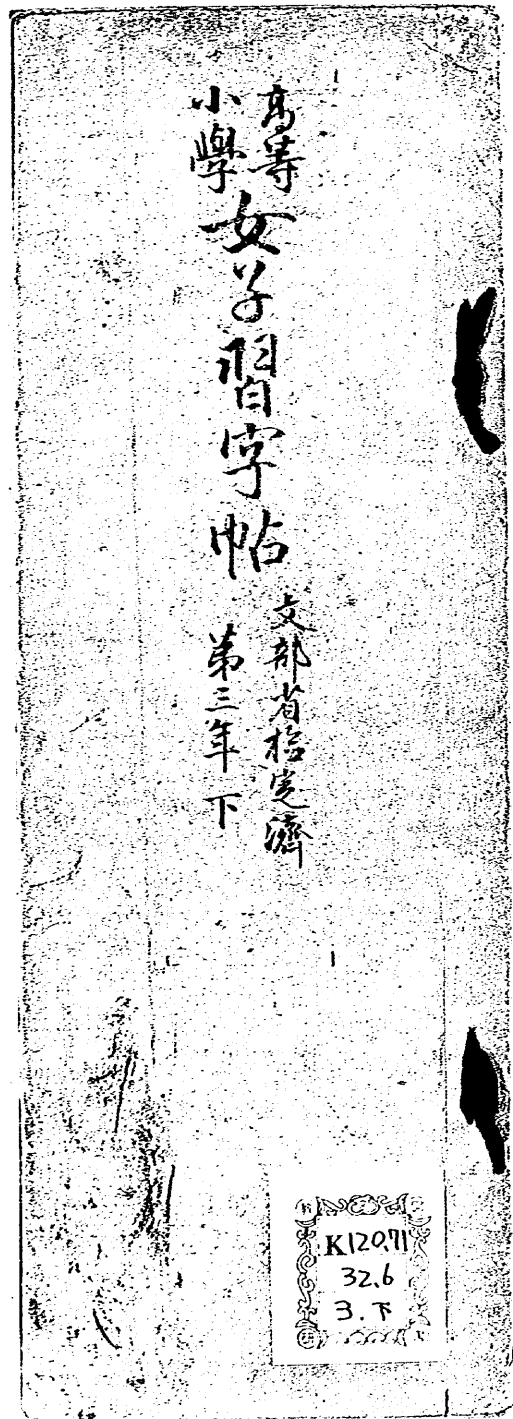 高等
小學
女子習字帖
文部省檢定濟
第三年下
K120.71
32.6
3.下